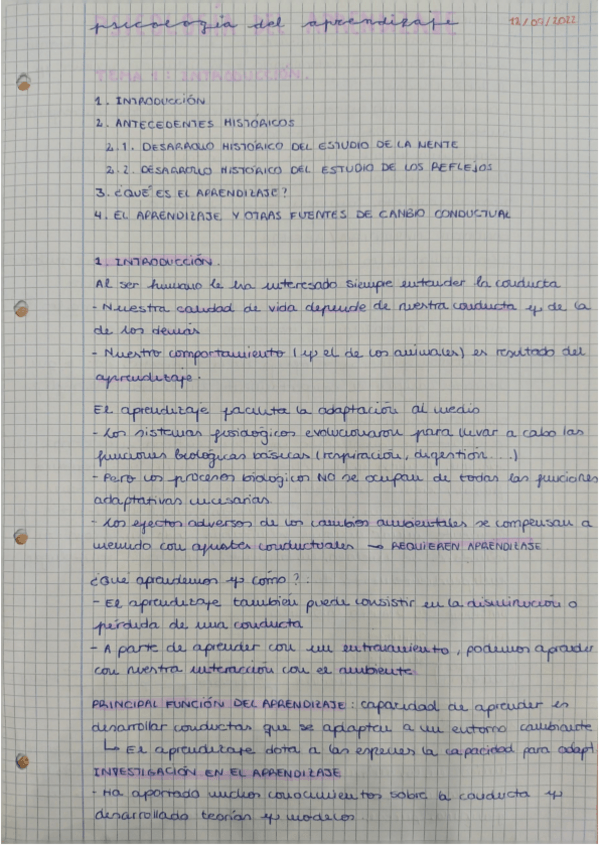 psicología del aprendizaje
12/07/2022
TEMA 1: INTRODUCCIÓN.
1. INTRODUCCIÓN
2. ANTECEDENTES HISTÓRICOS
2.1. DESARROLLO HISTÓRICO DEL ESTUDIO DE LA MENTE
2.2. DESARROLLO HISTÓRICO DEL ESTUDIO DE LOS REFLEJOS
3. ¿QUÉ ES EL APRENDIZAJE?
4. EL APRENDIZAJE Y OTRAS FUENTES DE CAMBIO CONDUCTUAL
1. INTRODUCCIÓN.
Al ser humano le ha interesado siempre entender la conducta
- Nuestra calidad de vida depende de nuestra conducta y de la
de los demás
- Nuestro comportamiento (y el de los animales) es resultado del
aprendizaje.
El aprendizaje facilita la adaptación al medio
- Los sistemas fisiológicos evolucionaron para llevar a cabo las
funciones biológicas básicas (respiración, digestión...)
- Pero los procesos biológicos NO se ocupan de todas las funciones
adaptativas necesarias
- Los efectos adversos de los cambios ambientales se compensan a
menudo con ajustes conductuales → REQUIEREN APRENDIZAJE
¿Qué aprendemos y cómo?.
- El aprendizaje también puede consistir en la disminución o
pérdida de una conducta
- A parte de aprender con un entrenamiento, podemos aprender
con nuestra interacción con el ambiente
PRINCIPAL FUNCIÓN DEL APRENDIZAJE: capacidad de aprender es
desarrollar conductas que se adaptan a un entorno cambiante
↳ El aprendizaje dota a las especies la capacidad para adapt
INVESTIGACIÓN EN EL APRENDIZAJE
- Ha aportado muchos conocimientos sobre la conducta y
desarrollado teorías y modelos.